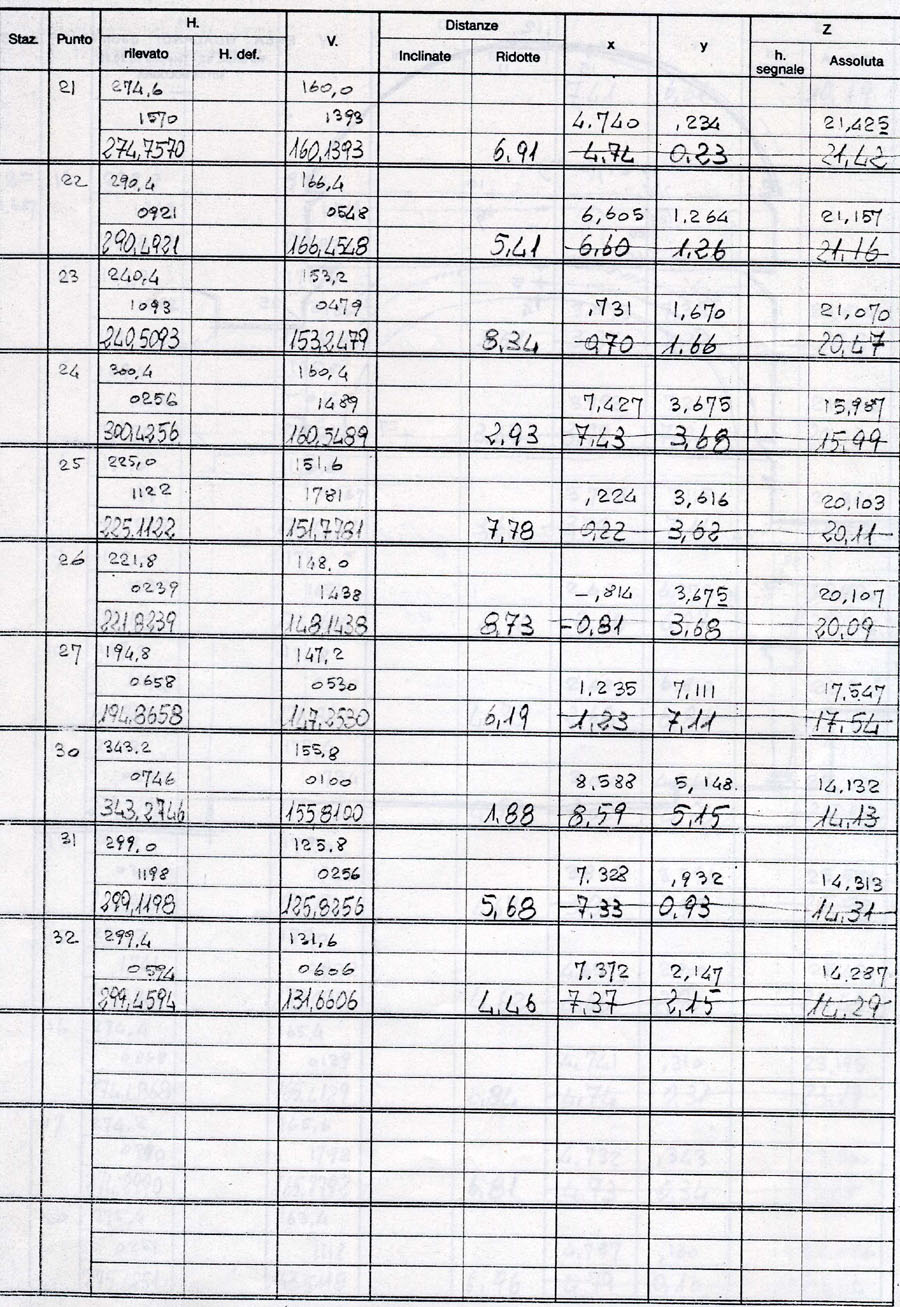 H. Distanze Z
Staz. Punto V. x y
rilevato H. def. Inclinate Ridotte h. segnale Assoluta
21 274,6 160,0
1570 1393 4.740 ,234 21,425
274,7570 160,1393 6,91 4,74 0,23 21,42
22 290,4 166,4
0921 0548 6,605 1,264 21,157
290,4921 166,4548 5,41 6,60 1,26 21,16
23 240,4 153,2
1093 0479 ,731 1,670 21,070
240,5093 153,2479 8,34 0,70 1,66 20,47
24 300,4 160,4
0256 1489 7,427 3,675 15,987
300,4256 160,5489 2,93 7,43 3,68 15,99
25 225,0 151,6
1122 1781 ,224 3,616 20,103
225,1122 151,7781 7,78 0,22 3,62 20,11
26 221,8 148,0
0239 1438 -,814 3,675 20,107
221,8239 148,1438 8,73 -0,81 3,68 20,09
27 194,8 147,2
0658 0530 1,235 7,111 17,547
194,8658 147,2530 6,19 1,23 7,11 17,54
30 343,2 155,8
0746 0100 8,588 5,148. 14,132
343,2746 155,8100 1,88 8,59 5,15 14,13
31 299,0 125,8
1198 0256 7.328 ,932 14,313
299,1198 125,8256 5,68 7,33 0,93 14,31
32 299,4 131,6
0594 0606 7,372 2,147 14,287
299,4594 131,6606 4,46 7,37 2,15 14,29